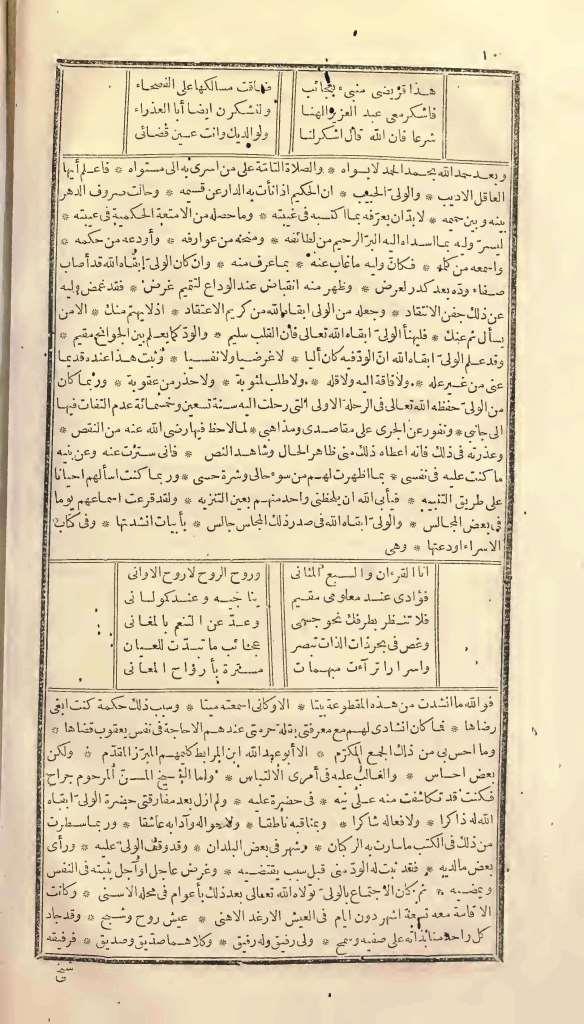 ١٠
هذا قريضى منبىء بعجائب ضاقت مسالكها على الفصحاء
فاشكر معى عبد العزيز الهنا ولنشكرن ايضا أبا العذراء
شرعا فان الله قال اشكرلنا ولوالديك وانت عين قضائى
وبعد حمد الله بحمد الحمد لا بسواه * والصلاة التامة على من اسرى به الى مستواه * فاعلم أيها
العاقل الاديب * والولى الحبيب * ان الحكيم اذا نأت به الدار عن قسيمه * وحالت صروف الدهر
بينه وبين حميمه * لا بد ان يعرّفه بما اكتسبه فى غيبته * وما حصله من الامتعة الحكمية فى عيبته *
ليسر وليه بما اسداه اليه البر الرحيم من لطائفه * ومنحه من عوارفه * وأودعه من حكمه *
واسمعه من كلمه * فكأنّ وليه ما غاب عنه * بما عرف منه * وان كان الولى ابقاه الله قد أصاب
صفاء وده بعد كدر لعرض * وظهر منه انقباض عند الوداع لتتميم غرض * فقد غمض وليه
عن ذلك جفن الانتقاد * وجعله من الولى ابقاه الله من كريم الاعتقاد * اذ لا يهتم منك * الا من
يسأل ثم عنك * فليهنأ الولى ابقاه الله تعالى فان القلب سليم * والودّ كما يعلم بين الجوانح مقيم *
وقد علم الولى ابقاه الله انّ الودّ فيه كان أليا * لا غرضيا ولا نفسيا * وثبت هذا عنده قديما
عنى من غير عله * ولا فاقة اليه ولا قله * ولا طلب لمثوبة * ولا حذر من عقوبة * وربما كان
من الولى حفظه الله تعالى فى الرحلة الاولى التى رحلت اليه سنة تسعين وخمسمائة عدم التفات فيها
الى جانبى * ونفور عن الجرى على مقاصدى ومذاهبى * لما لاحظ فيها رضى الله عنه من النقص *
وعذرته فى ذلك فانه اعطاه ذلك منى ظاهر الحال وشاهد النص * فانى سترت عنه وعن بنيه
ما كنت عليه فى نفسى * بما اظهرت لهم من سوء حالى وشرة حسى * وربما كنت اسألهم احيانا
على طريق التنبيه * فيأبى الله ان يلحظنى واحد منهم بعين التنزيه * ولقد قرعت اسماعهم يوما
فى بعض المجالس * والولى ابقاه الله فى صدر ذلك المجلس جالس * بأبيات انشدتها * وفى كتاب
الاسراء اودعتها * وهى
انا القرءان والسبع المثانى وروح الروح لا روح الاوانى
فؤادى عند معلومى مقيم يناجيه وعندكم لسانى
فلا تنظر بطرفك نحو جسمى وعدّ عن التنعم بالمغانى
وغص فى بحر ذات الذات تبصر عجائب ما تبدّت للعيان
واسرارا تراءت مبهمات مسترة بأرواح المعانى
فوالله ما انشدت من هذه المقطوعة بيتا * الا وكأنى اسمعته ميتا * وسبب ذلك حكمة كنت ابغى
رضاها * فما كان انشادى لهم مع معرفتى بقلة حرمتى عندهم الا حاجة فى نفس يعقوب قضاها *
وما احس بى من ذلك الجمع المكرّم * الا أبو عبد الله ابن المرابط كليمهم المبرّز المقدّم * ولكن
بعض احساس * والغالب عليه فى أمرى الالتباس * واما الشيخ المسنّ المرحوم جراح
فكنت قد تكاشفت منه على نيه * فى حضرة عليه * ولم ازل بعد مفارقتى حضرة الولى ابقاه
الله له ذاكرا * ولافعاله شاكرا * وبمناقبه ناطقا * ولاحواله وآدابه عاشقا * وربما سطرت
من ذلك فى الكتب ما سارت به الركبان * وشهر فى بعض البلدان * وقد وقف الولى عليه * ورأى
بعض ما لديه * فقد ثبت له الودّ منى قبل سبب يقتضيه * وغرض عاجل او آجل يثبته فى النفس
ويمضيه * ثم كان الاجتماع بالولى تولاه الله تعالى بعد ذلك بأعوام فى محله الاسنى * وكانت
الاقامة معه تسعة اشهر دون ايام فى العيش الارغد الاهنى * عيش روح وشبح * وقد جاد
كل واحد منا بذاته على صفيه وسمح * ولى رفيق وله رفيق * وكلاهما صدّيق وصديق * فرفيقه
شيخ